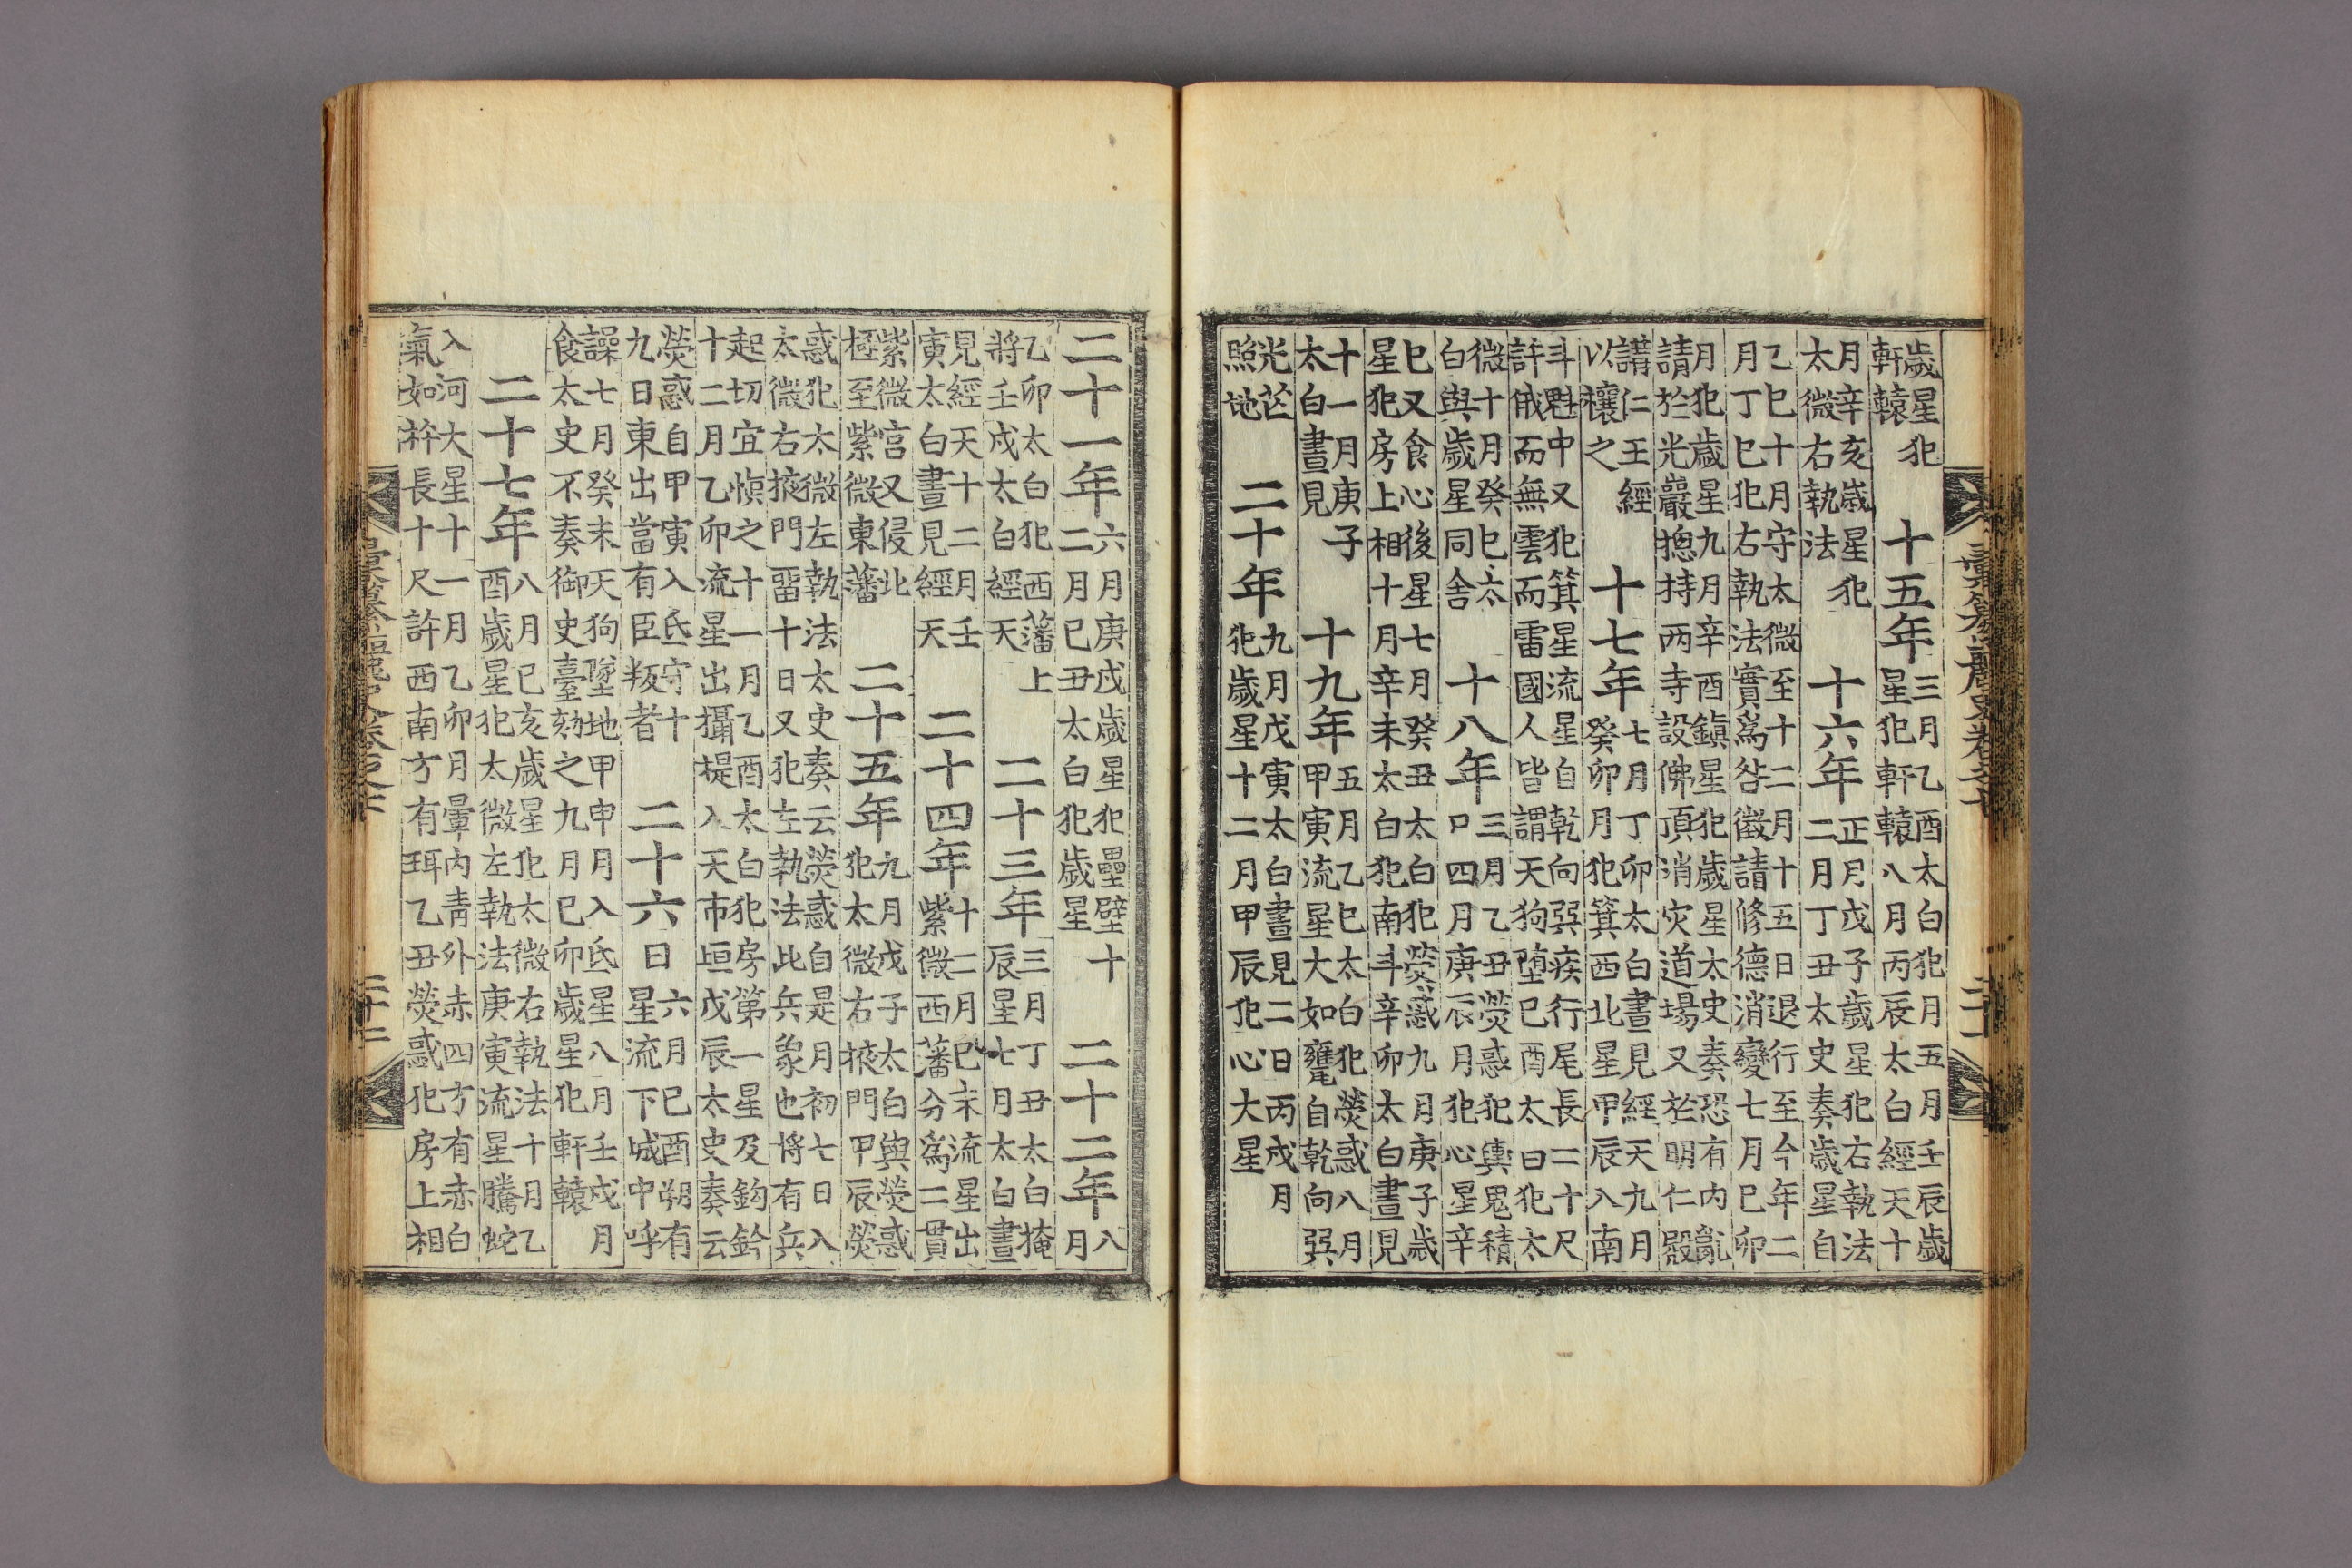 歲星犯軒轅 十五年 三月乙酉太白犯月五月壬辰歲星犯軒轅八月丙辰太白經天十
月辛亥歲星犯太微右執法 十六年 正月戊子歲星犯右執法二月丁丑太史奏歲星自
乙巳十月守太微至十二月十五日退行至今年二月丁巳犯右執法實爲咎徵請修德消變七月巳卯
月犯歲星九月辛酉鎮星犯歲星太史奏恐有內亂請於光巖摠持两寺設佛頂消灾道場又於明仁殿
講仁王經以禳之 十七年 七月丁卯太白晝見經天九月癸卯月犯箕西北星甲辰入南
斗魁中又犯箕星流星自乾向巽疾行尾長二十尺許俄而無雲而雷國人皆謂天狗墮巳酉太白犯太
微十月癸巳太白與歲星同舍 十八年 三月乙丑熒惑犯輿鬼積尸四月庚辰月犯心星辛
巳又食心後星七月癸丑太白犯熒惑九月庚子歲星犯房上相十月辛未太白犯南斗辛卯太白晝見
十一月庚子太白晝見 十九年 五月乙巳太白犯熒惑八月甲寅流星大如甕自乾向巽
光芒照地 二十年 九月戊寅太白晝見二日丙戌月犯歲星十二月甲辰犯心大星
二十一年 六月庚戌歲星犯壘壁十二月巳丑太白犯歲星 二十二年 八月
乙卯太白犯西藩上將壬戌太白經天 二十三年 三月丁丑太白掩辰星七月太白晝
見經天十二月壬寅太白晝見經天 二十四年 十二月巳未流星出紫微西藩分爲二貫
紫微宮又侵北極至紫微東藩 二十五年 九月戊子太白與熒惑犯太微右掖門甲辰熒
惑犯太微左執法太史奏云熒惑自是月初七日入太微右掖門畱十日又犯左執法此兵象也將有兵
起切宜愼之十一月乙酉太白犯房第一星及鈎鈐十二月乙卯流星出攝提入天市垣戊辰太史奏云
熒惑自甲寅入氐守十九日東出當有臣叛者 二十六日 六月巳酉朔有星流下城中呼
譟七月癸未天狗墜地甲申月入氐星八月壬戌月食太史不奏御史臺劾之九月巳卯歲星犯軒轅
二十七年 八月巳亥歲星犯太微右執法十月乙酉歲星犯太微左執法庚寅流星騰蛇
入河大星十一月乙卯月暈內靑外赤四方有赤白氣如杵長十尺許西南方有珥乙丑熒惑犯房上相